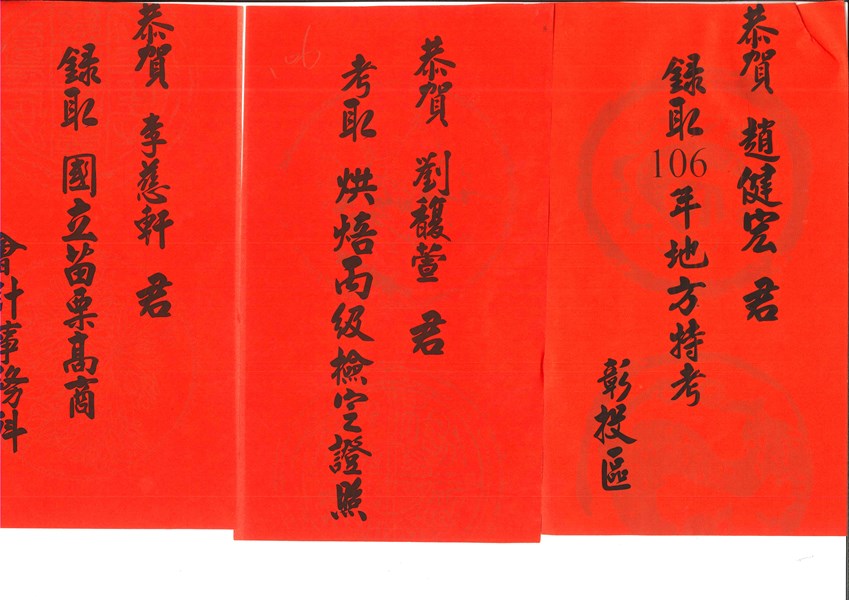 恭賀 趙健宏 君
錄取106年地方特考
彰投區
恭賀 劉馥萱 君
考取 烘焙丙級檢定證照
106
恭賀 李慈軒 君
錄取 國立苗栗高商
會計事務科